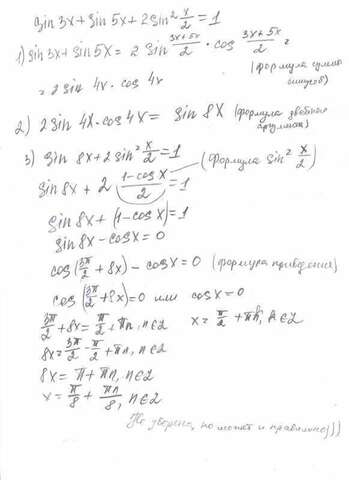 sin 3x + sin 5x + 2 sin² x/2 = 1
1) sin 3x + sin 5x = 2 sin (3x+5x)/2 · cos (3x+5x)/2 =
(формула суммы синусов)
= 2 sin 4x · cos 4x
2) 2 sin 4x · cos 4x = sin 8x (формула двойного аргумента)
3) sin 8x + 2 sin² x/2 = 1
(формула sin² x/2)
sin 8x + 2 (1-cos x)/2 = 1
sin 8x + (1-cos x) = 1
sin 8x - cos x = 0
cos(3π/2 + 8x) - cos x = 0 (формула приведения)
cos(3π/2 + 8x) = 0 или cos x = 0
3π/2 + 8x = π/2 + πn, n∈Z x = π/2 + πk, k∈Z
8x = 3π/2 - π/2 + πn, n∈Z
8x = π + πn, n∈Z
x = π/8 + πn/8, n∈Z
Не уверена, но может и правильно)))